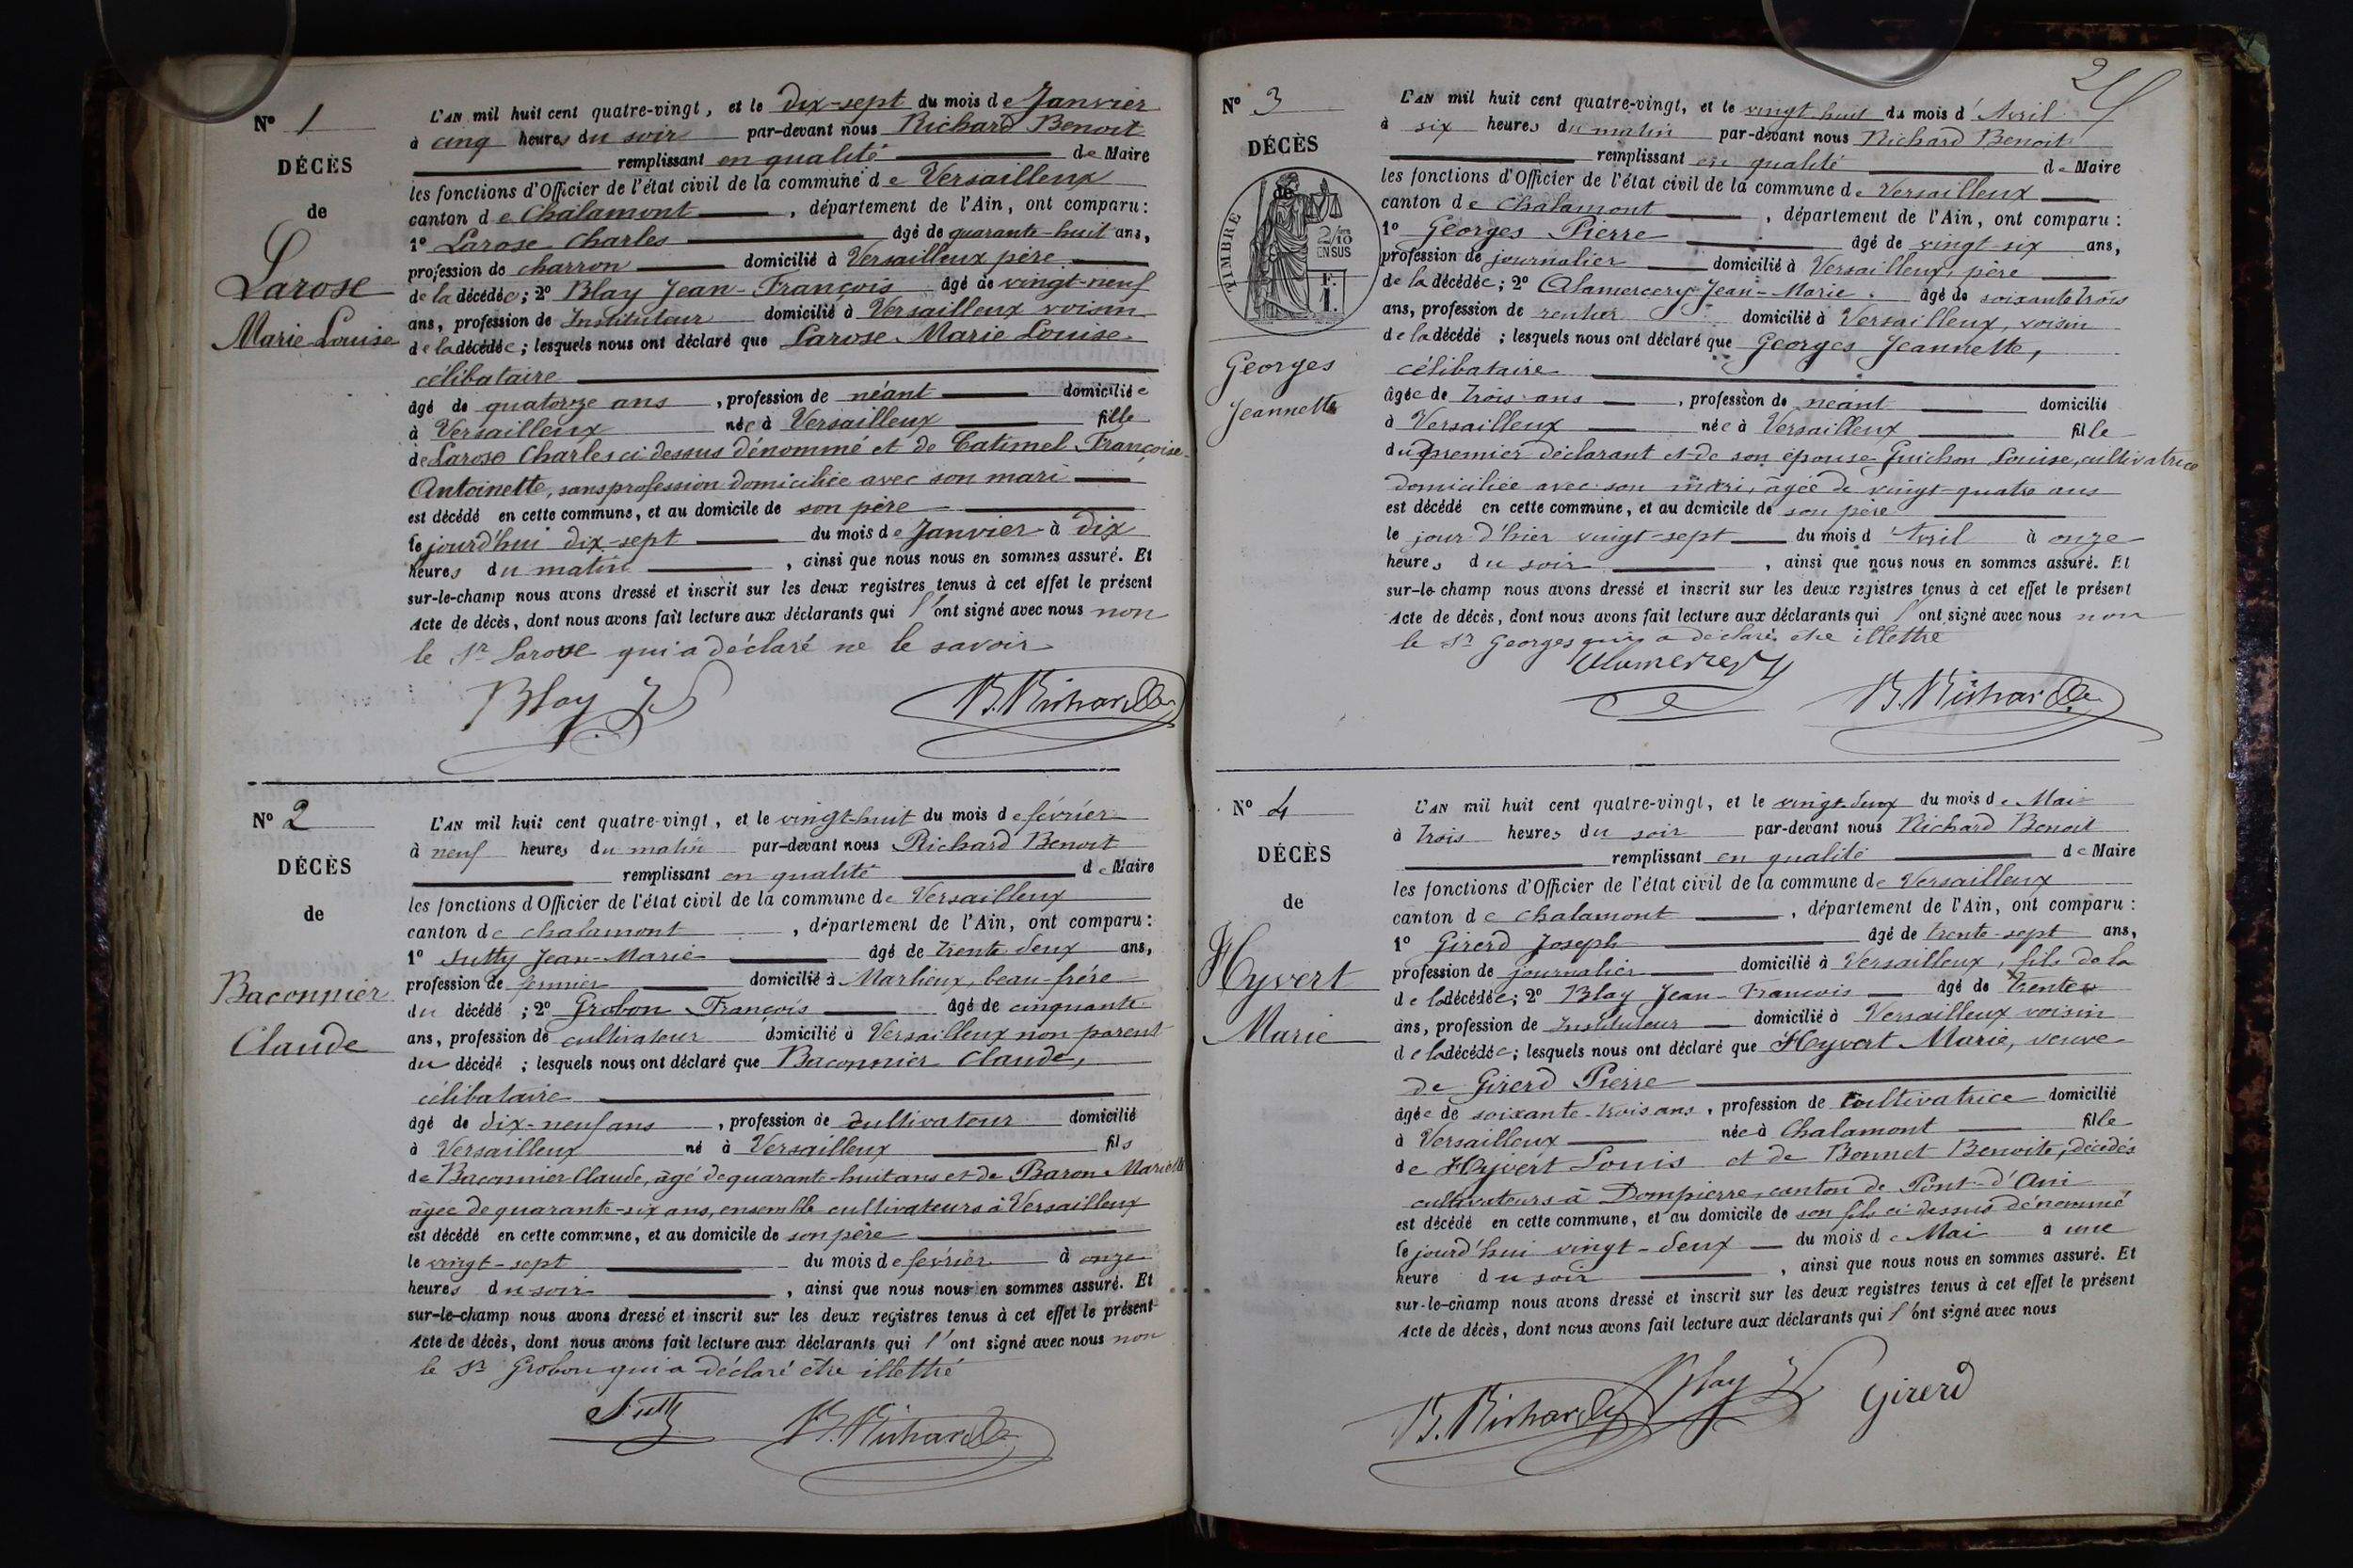 N° 1
DÉCÈS
de
Larose
Marie Louise
L'AN mil huit cent quatre-vingt, et le dix-sept du mois de Janvier
à cinq heures du soir par-devant nous Richard Benoit
remplissant en qualité de Maire
les fonctions d'Officier de l'état civil de la commune de Versailleux
canton de Chalamont, département de l'Ain, ont comparu :
1° Larose Charles âgé de quarante-huit ans,
profession de charron domicilié à Versailleux père
de la décédée ; 2° Blay Jean-François âgé de vingt-neuf
ans, profession de Instituteur domicilié à Versailleux voisin
de la décédée ; lesquels nous ont déclaré que Larose Marie Louise
célibataire
âgé de quatorze ans, profession de néant domiciliée
à Versailleux née à Versailleux fille
de Larose Charles ci dessus dénommé et de Catimel Françoise
Antoinette, sans profession domiciliée avec son mari
est décédé en cette commune, et au domicile de son père
le jourd'hui dix-sept du mois de Janvier à dix
heures du matin, ainsi que nous nous en sommes assuré. Et
sur-le-champ nous avons dressé et inscrit sur les deux registres tenus à cet effet le présent
Acte de décès, dont nous avons fait lecture aux déclarants qui l'ont signé avec nous non
le Sr Larose qui a déclaré ne le savoir
Blay Jf B. Richard
N° 2
DÉCÈS
de
Baconnier
Claude
L'AN mil huit cent quatre-vingt, et le vingt-huit du mois de février
à neuf heures du matin par-devant nous Richard Benoit
remplissant en qualité de Maire
les fonctions d'Officier de l'état civil de la commune de Versailleux
canton de chalamont, département de l'Ain, ont comparu :
1° Sutty Jean-Marie âgé de trente deux ans,
profession de fermier domicilié à Marlieux, beau-frère
du décédé ; 2° Grobon François âgé de cinquante
ans, profession de cultivateur domicilié à Versailleux non parent
du décédé ; lesquels nous ont déclaré que Baconnier Claude,
célibataire
âgé de dix-neuf ans, profession de cultivateur domicilié
à Versailleux né à Versailleux fils
de Baconnier Claude, âgé de quarante-huit ans et de Baron
âgée de quarante-six ans, ensemble cultivateurs à Versailleux
est décédé en cette commune, et au domicile de son père
le vingt-sept du mois de février à onze
heures du soir, ainsi que nous nous en sommes assuré. Et
sur-le-champ nous avons dressé et inscrit sur les deux registres tenus à cet effet le présent
Acte de décès, dont nous avons fait lecture aux déclarants qui l'ont signé avec nous non
le Sr Grobon qui a déclaré être illettré
Sutty B. Richard
N° 3
DÉCÈS
de
TIMBRE
2/10 EN SUS
F. 1.
Georges
Jeannette
L'AN mil huit cent quatre-vingt, et le vingt huit du mois d'Avril
à six heures du matin par-devant nous Richard Benoit
remplissant en qualité de Maire
les fonctions d'Officier de l'état civil de la commune de Versailleux
canton de Chalamont, département de l'Ain, ont comparu :
1° Georges Pierre âgé de vingt-six ans,
profession de journalier domicilié à Versailleux, père
de la décédée ; 2° Alamercery Jean-Marie. âgé de soixante trois
ans, profession de rentier domicilié à Versailleux, voisin
de la décédé ; lesquels nous ont déclaré que Georges Jeannette,
célibataire
âgée de trois ans, profession de néant domicilié
à Versailleux née à Versailleux fille
du premier déclarant et de son épouse Guichon Louise, cultivatrice
domiciliée avec son mari, âgée de vingt-quatre ans
est décédé en cette commune, et au domicile de son père
le jour d'hier vingt-sept du mois d'Avril à onze
heures du soir, ainsi que nous nous en sommes assuré. Et
sur-le-champ nous avons dressé et inscrit sur les deux registres tenus à cet effet le présent
Acte de décès, dont nous avons fait lecture aux déclarants qui l'ont signé avec nous non
le Sr Georges qui a déclaré être illettré
Alamercery B. Richard
N° 4
DÉCÈS
de
Hyvert
Marie
L'AN mil huit cent quatre-vingt, et le vingt-deux du mois de Mai
à trois heures du soir par-devant nous Richard Benoit
remplissant en qualité de Maire
les fonctions d'Officier de l'état civil de la commune de Versailleux
canton de chalamont, département de l'Ain, ont comparu :
1° Girerd Joseph âgé de trente-sept ans,
profession de journalier domicilié à Versailleux, fils de la
de la décédée ; 2° Blay Jean-François âgé de trente
ans, profession de Instituteur domicilié à Versailleux voisin
de la décédée ; lesquels nous ont déclaré que Hyvert Marie, veuve
de Girerd Pierre
âgée de soixante-trois ans, profession de Cultivatrice domicilié
à Versailleux née à Chalamont fille
de Hyvert Louis et de Bonnet Benoite, décédés
cultivateurs à Dompierre, canton de Pont-d'Ain
est décédé en cette commune, et au domicile de son fils ci dessus dénommé
le jourd'hui vingt-deux du mois de Mai à une
heure du soir, ainsi que nous nous en sommes assuré. Et
sur-le-champ nous avons dressé et inscrit sur les deux registres tenus à cet effet le présent
Acte de décès, dont nous avons fait lecture aux déclarants qui l'ont signé avec nous
B. Richard Blay Jf Girerd